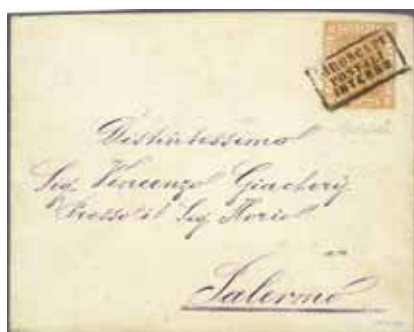 PIROSCAFI
POSTALI
INTERNO
Distintissimo
Sig. Vincenzo Giachery
Presso il Sig. Florio
Palermo